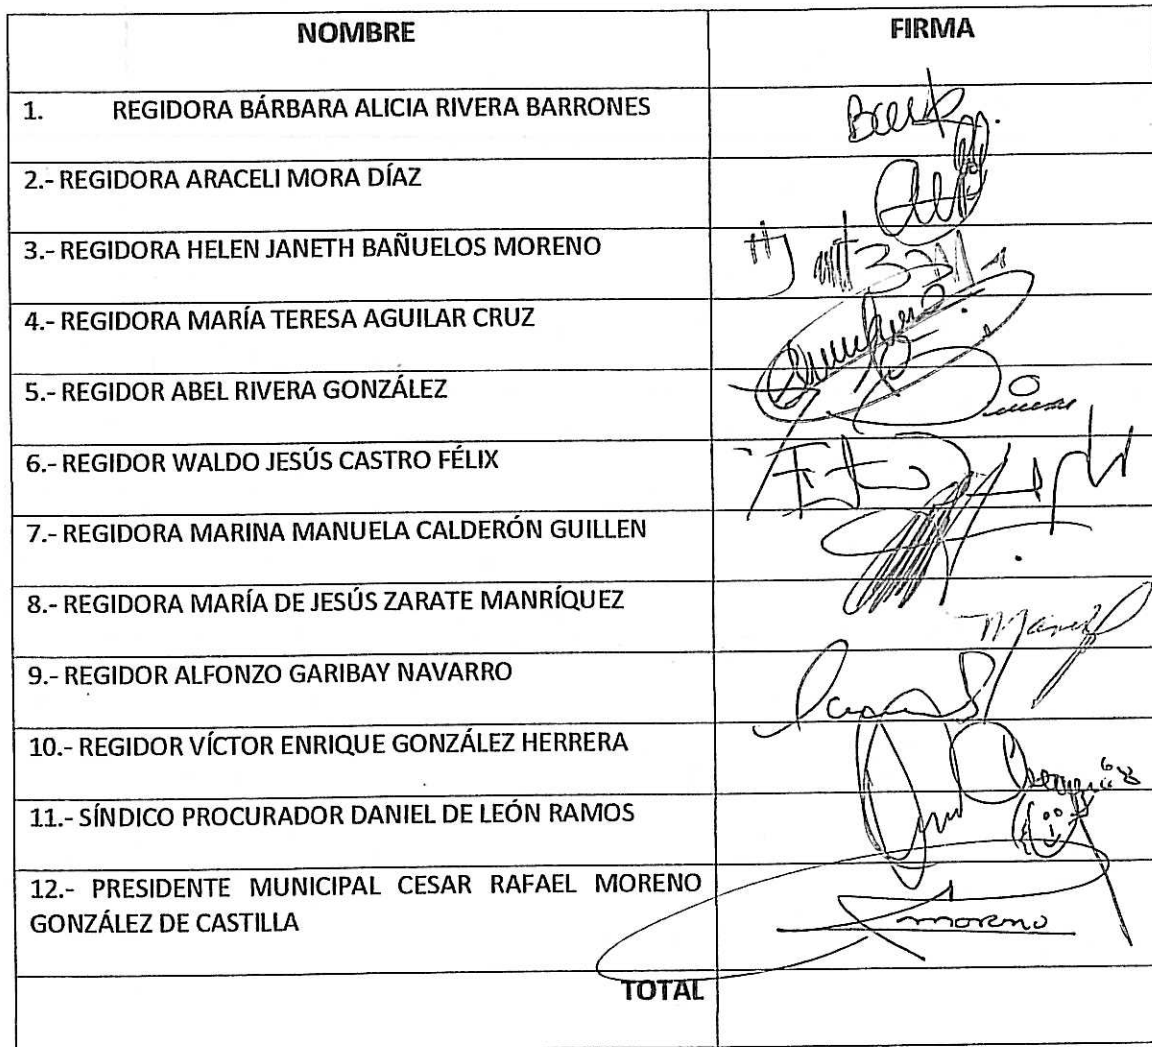 NOMBRE FIRMA
1. REGIDORA BÁRBARA ALICIA RIVERA BARRONES
2.- REGIDORA ARACELI MORA DÍAZ
3.- REGIDORA HELEN JANETH BAÑUELOS MORENO
4.- REGIDORA MARÍA TERESA AGUILAR CRUZ
5.- REGIDOR ABEL RIVERA GONZÁLEZ
6.- REGIDOR WALDO JESÚS CASTRO FÉLIX
7.- REGIDORA MARINA MANUELA CALDERÓN GUILLEN
8.- REGIDORA MARÍA DE JESÚS ZARATE MANRÍQUEZ
9.- REGIDOR ALFONZO GARIBAY NAVARRO
10.- REGIDOR VÍCTOR ENRIQUE GONZÁLEZ HERRERA
11.- SÍNDICO PROCURADOR DANIEL DE LEÓN RAMOS
12.- PRESIDENTE MUNICIPAL CESAR RAFAEL MORENO
GONZÁLEZ DE CASTILLA moreno
TOTAL